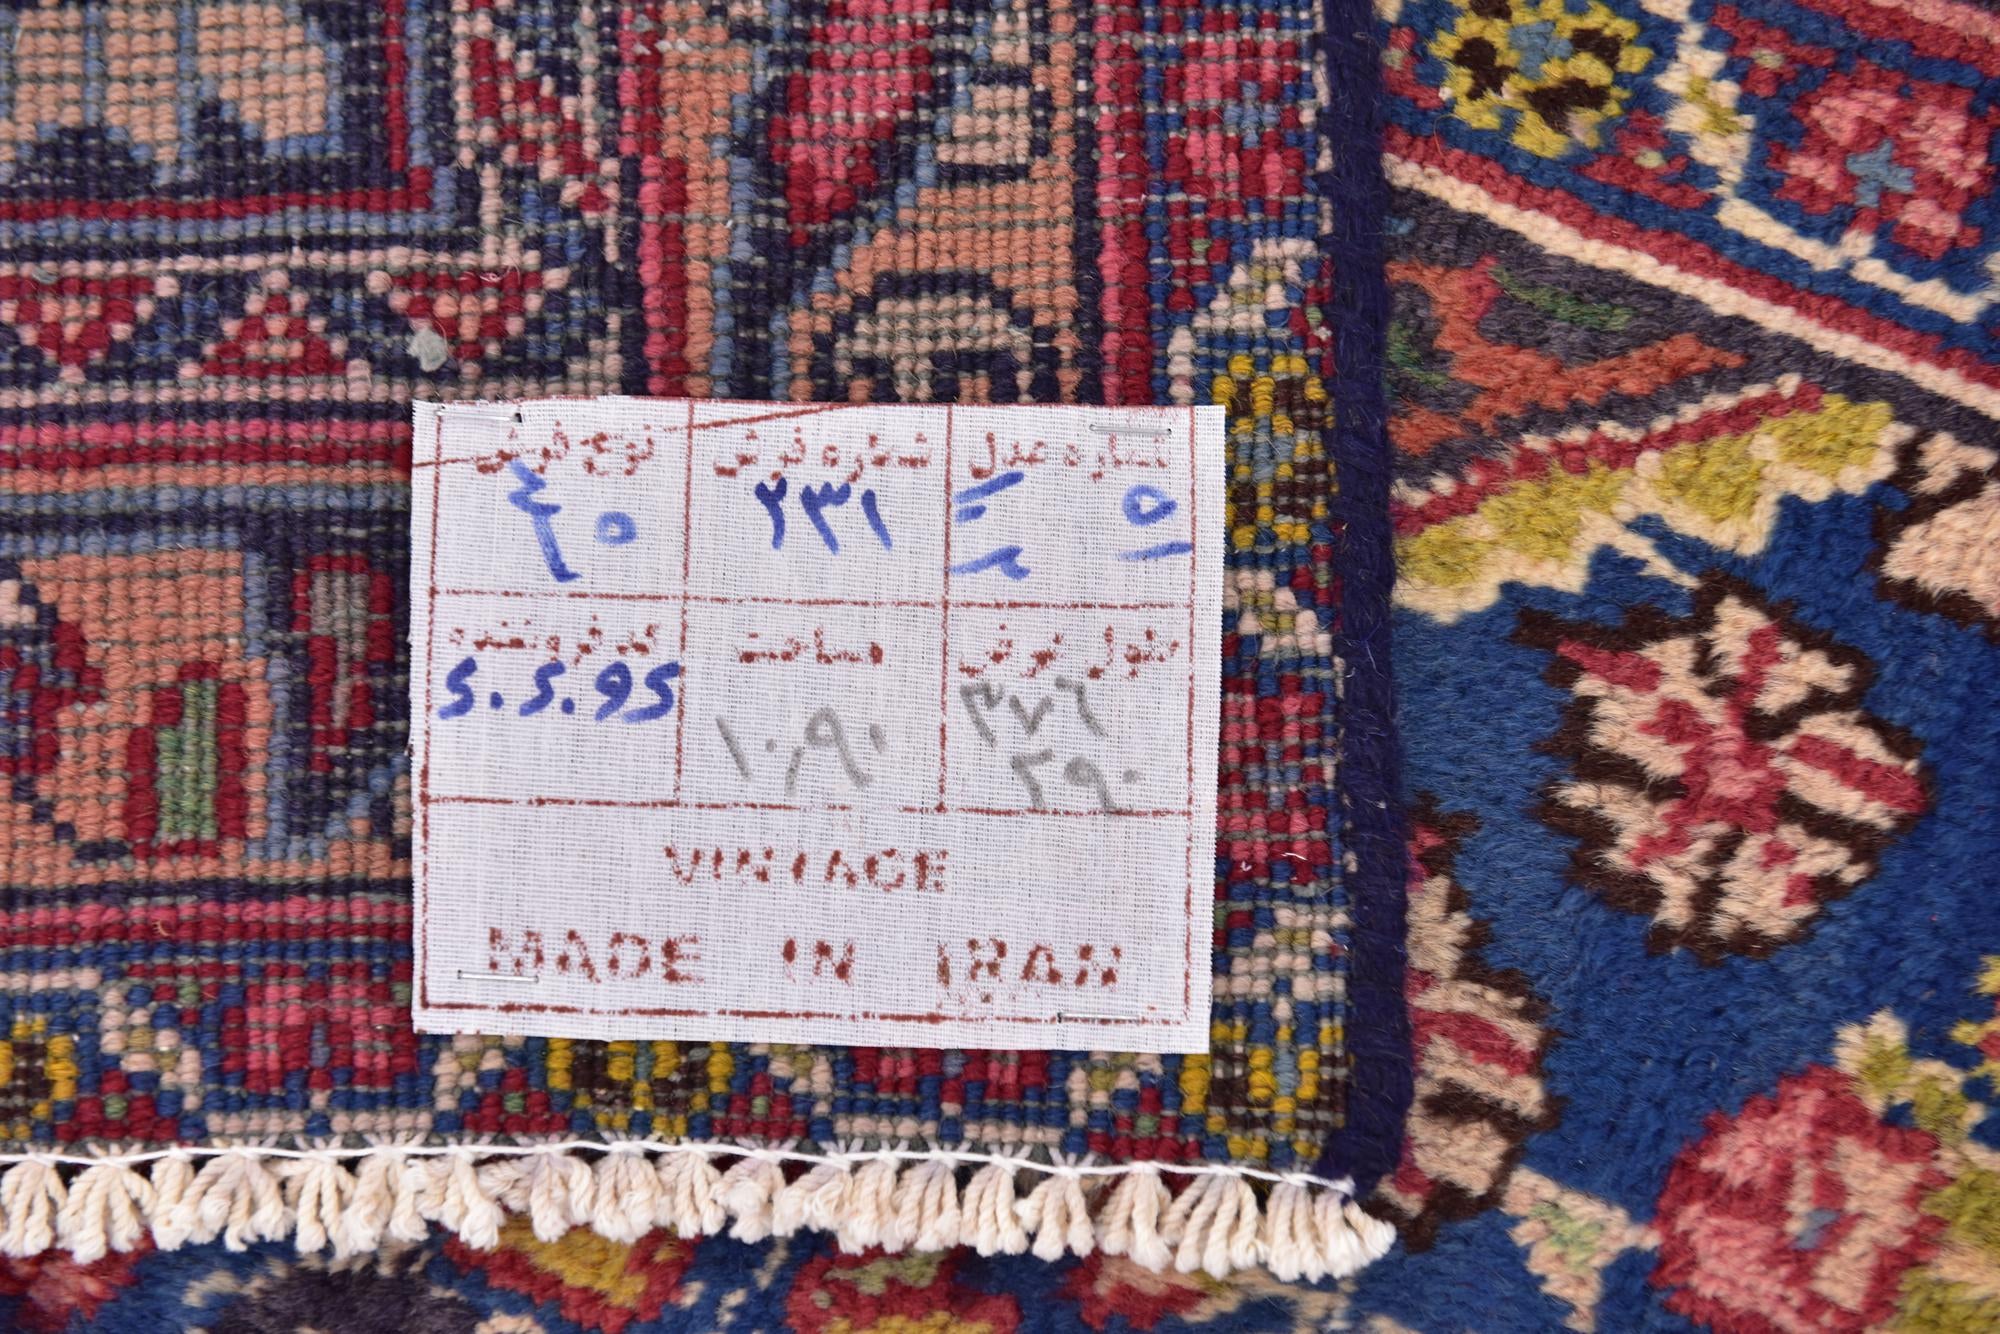 شماره عدل شماره فرش نوع فرش
۵ ۲۳۱
طول عرض مساحت کد فروشنده
۳۷۶ ۱۰٫۹۰ S.S.9S
۲۹۰
VINTAGE
MADE IN IRAN